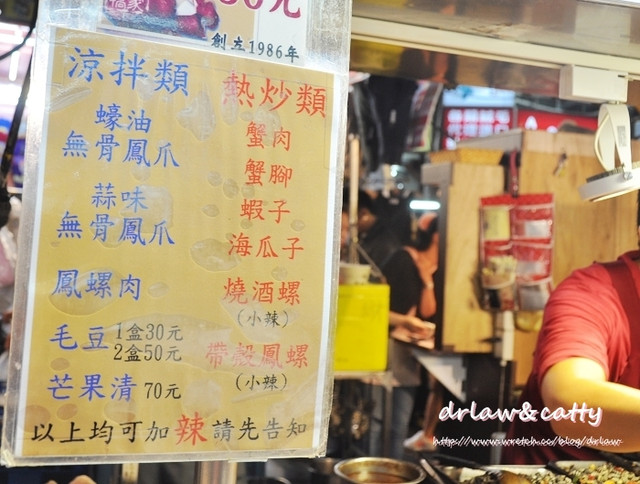 創立1986年
涼拌類
蠔油
無骨鳳爪
蒜味
無骨鳳爪
鳳螺肉
毛豆 1盒30元
2盒50元
芒果清 70元
熱炒類
蟹肉
蟹腳
蝦子
海瓜子
燒酒螺
(小辣)
帶殼鳳螺
(小辣)
以上均可加辣請先告知
drlaw&catty
http://www.wretch.cc/blog/drlaw